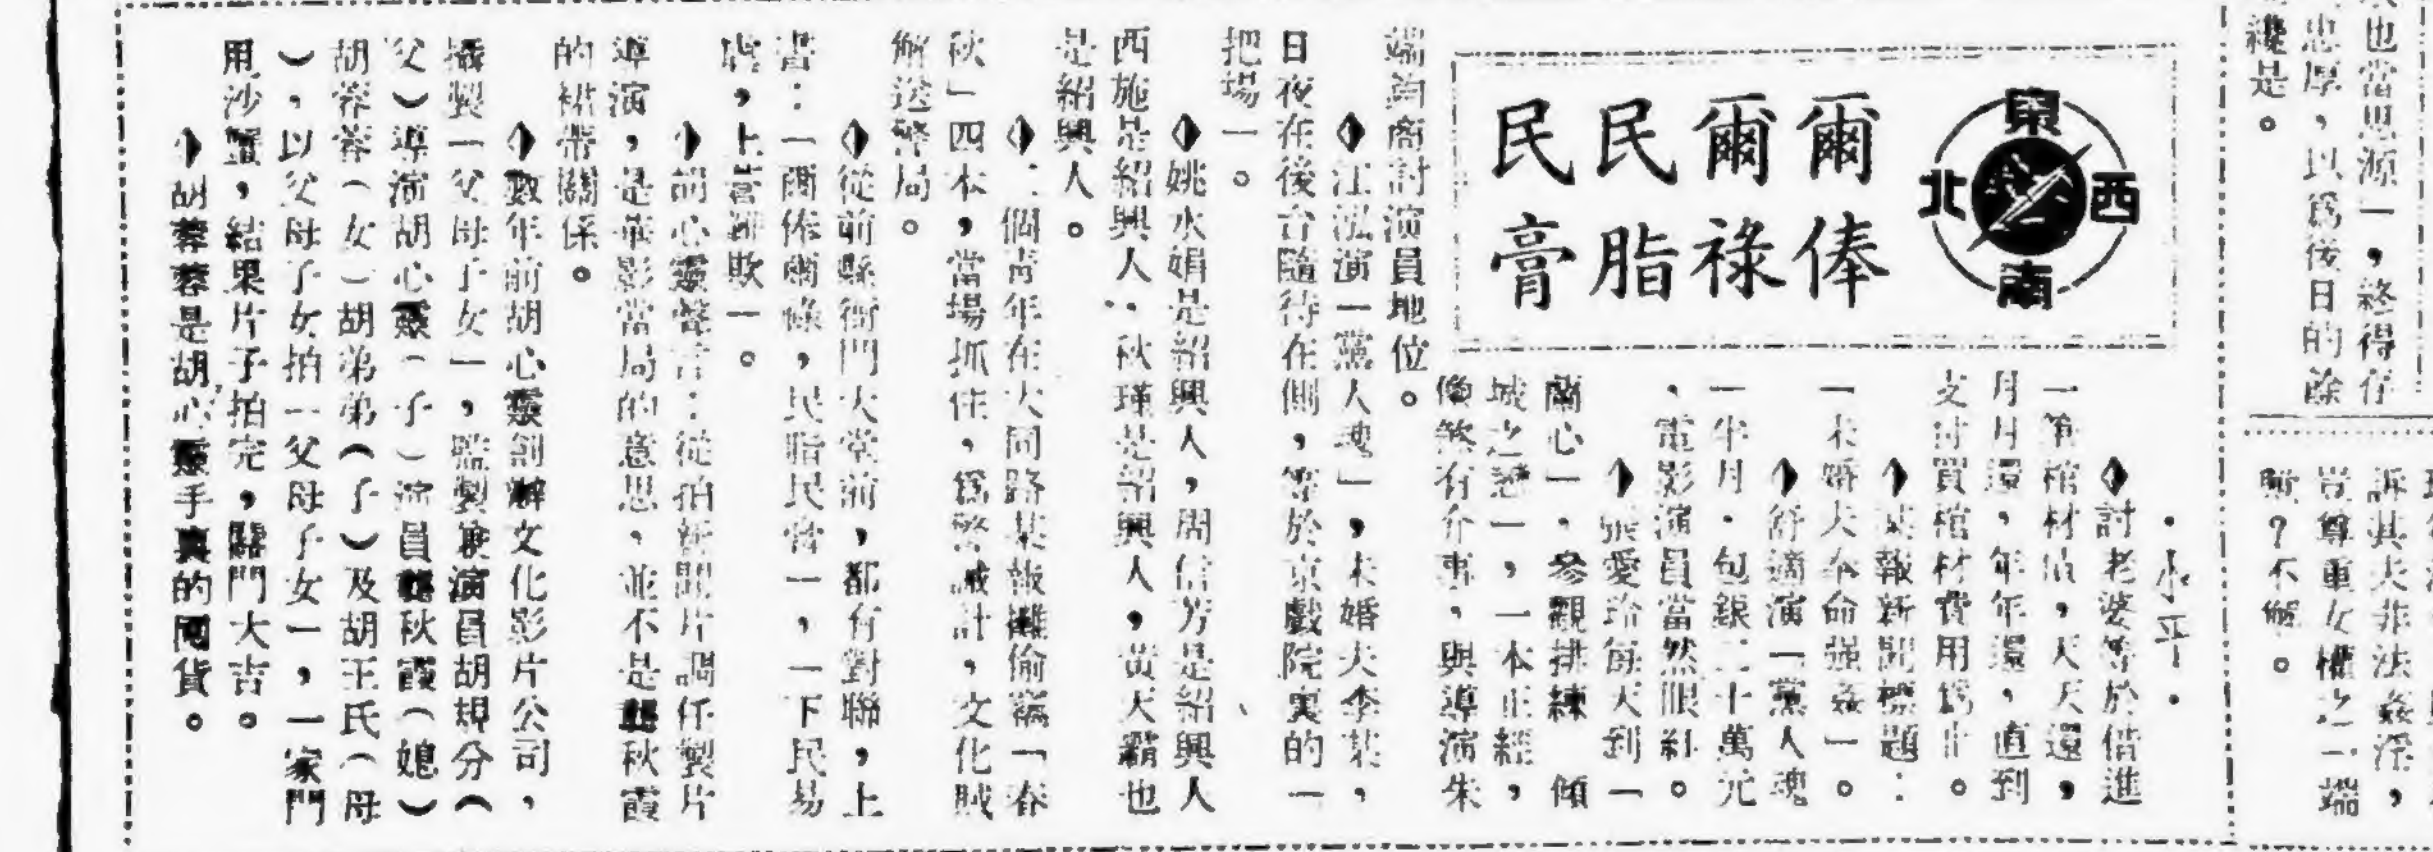 也當思源」，終得存
忠厚，以爲後日的餘
褲是。
訴其夫非法姦淫，
豈尊重女權之一端
歟？不解。
東西南北
爾俸
爾祿
民脂
民膏
·小平·
討老婆等於借進
一筆棺材債，天天還，
月月還，年年還，直到
支付買棺材費用爲止。
某報新聞標題：
「未婚夫奉命强姦」。
舒適演「黨人魂
」半月，包銀二十萬元
，電影演員當然眼紅。
張愛玲每天到「
蘭心」，參觀排練「傾
城之戀」，一本正經，
像煞有介事，與導演朱
端鈞商討演員地位。
江泓演「黨人魂」，未婚夫李某，
日夜在後台隨待在側，等於京戲院裏的「
把場」。
姚水娟是紹興人，周信芳是紹興人
西施是紹興人，秋瑾是紹興人，黄天霸也
是紹興人。
一個青年在大同路某報攤偷竊「春
秋」四本，當場抓住，爲警誡計，文化賊
解送警局。
從前縣衙門大堂前，都有對聯，上
書：「爾俸爾祿，民脂民膏」，「下民易
虐，上蒼難欺」。
胡心靈聲言：從拍新聞片調任製片
導演，是華影當局的意思，並不是龔秋霞
的裙帶關係。
數年前胡心靈創辦文化影片公司，
攝製「父母子女」，監製兼演員胡規分（
父）導演胡心靈（子）演員龔秋霞（媳）
胡蓉蓉（女）胡弟弟（子）及胡王氏（母
），以父母子女拍「父母子女」，一家門
用沙蠶，結果片子拍完，關門大吉。
胡蓉蓉是胡心靈手裏的囤貨。